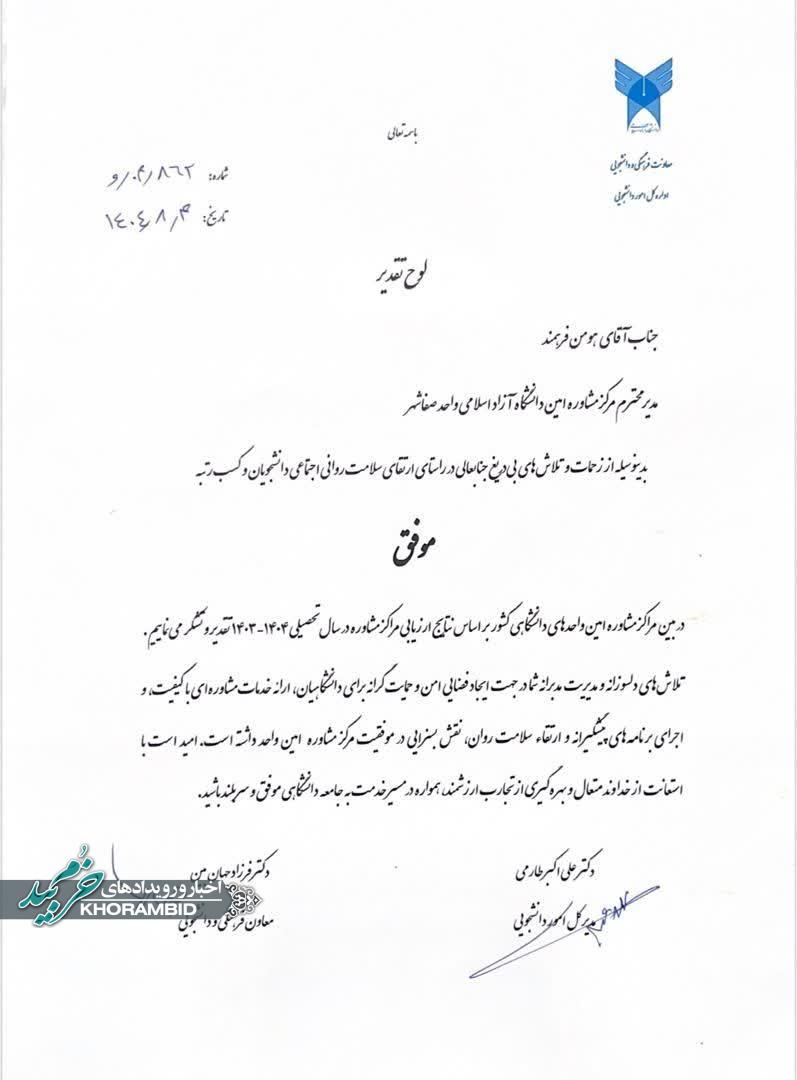 باسمه تعالی
معاونت فرهنگی و دانشجویی
اداره کل امور دانشجویی
شماره: ۸۶۲
تاریخ: ۱۴۰۴/۸/۳
لوح تقدیر
جناب آقای هومن فرهمند
مدیر محترم مرکز مشاوره امین دانشگاه آزاد اسلامی واحد صفاشهر
بدینوسیله از زحمات و تلاش های بی دریغ جنابعالی در راستای ارتقای سلامت روانی اجتماعی دانشجویان و کسب رتبه
موفق
در بین مراکز مشاوره امین واحدهای دانشگاهی کشور بر اساس نتایج ارزیابی مراکز مشاوره در سال تحصیلی ۱۴۰۴-۱۴۰۳ تقدیر و تشکر می نماییم.
تلاش های دلسوزانه و مدیریت مدبرانه شما در جهت ایجاد فضایی امن و حمایت گرانه برای دانشگاهیان، ارائه خدمات مشاوره ای با کیفیت، و
اجرای برنامه های پیشگیرانه و ارتقاء سلامت روان، نقش بسزایی در موفقیت مرکز مشاوره امین واحد داشته است. امید است با
استعانت از خداوند متعال و بهره گیری از تجارب ارزشمند، همواره در مسیر خدمت به جامعه دانشگاهی موفق و سربلند باشید.
دکتر علی اکبر طارمی
مدیر کل امور دانشجویی
دکتر فرزاد جهان بین
معاون فرهنگی و دانشجویی
اخبار و رویدادهای خرمبید
KHORAMBID